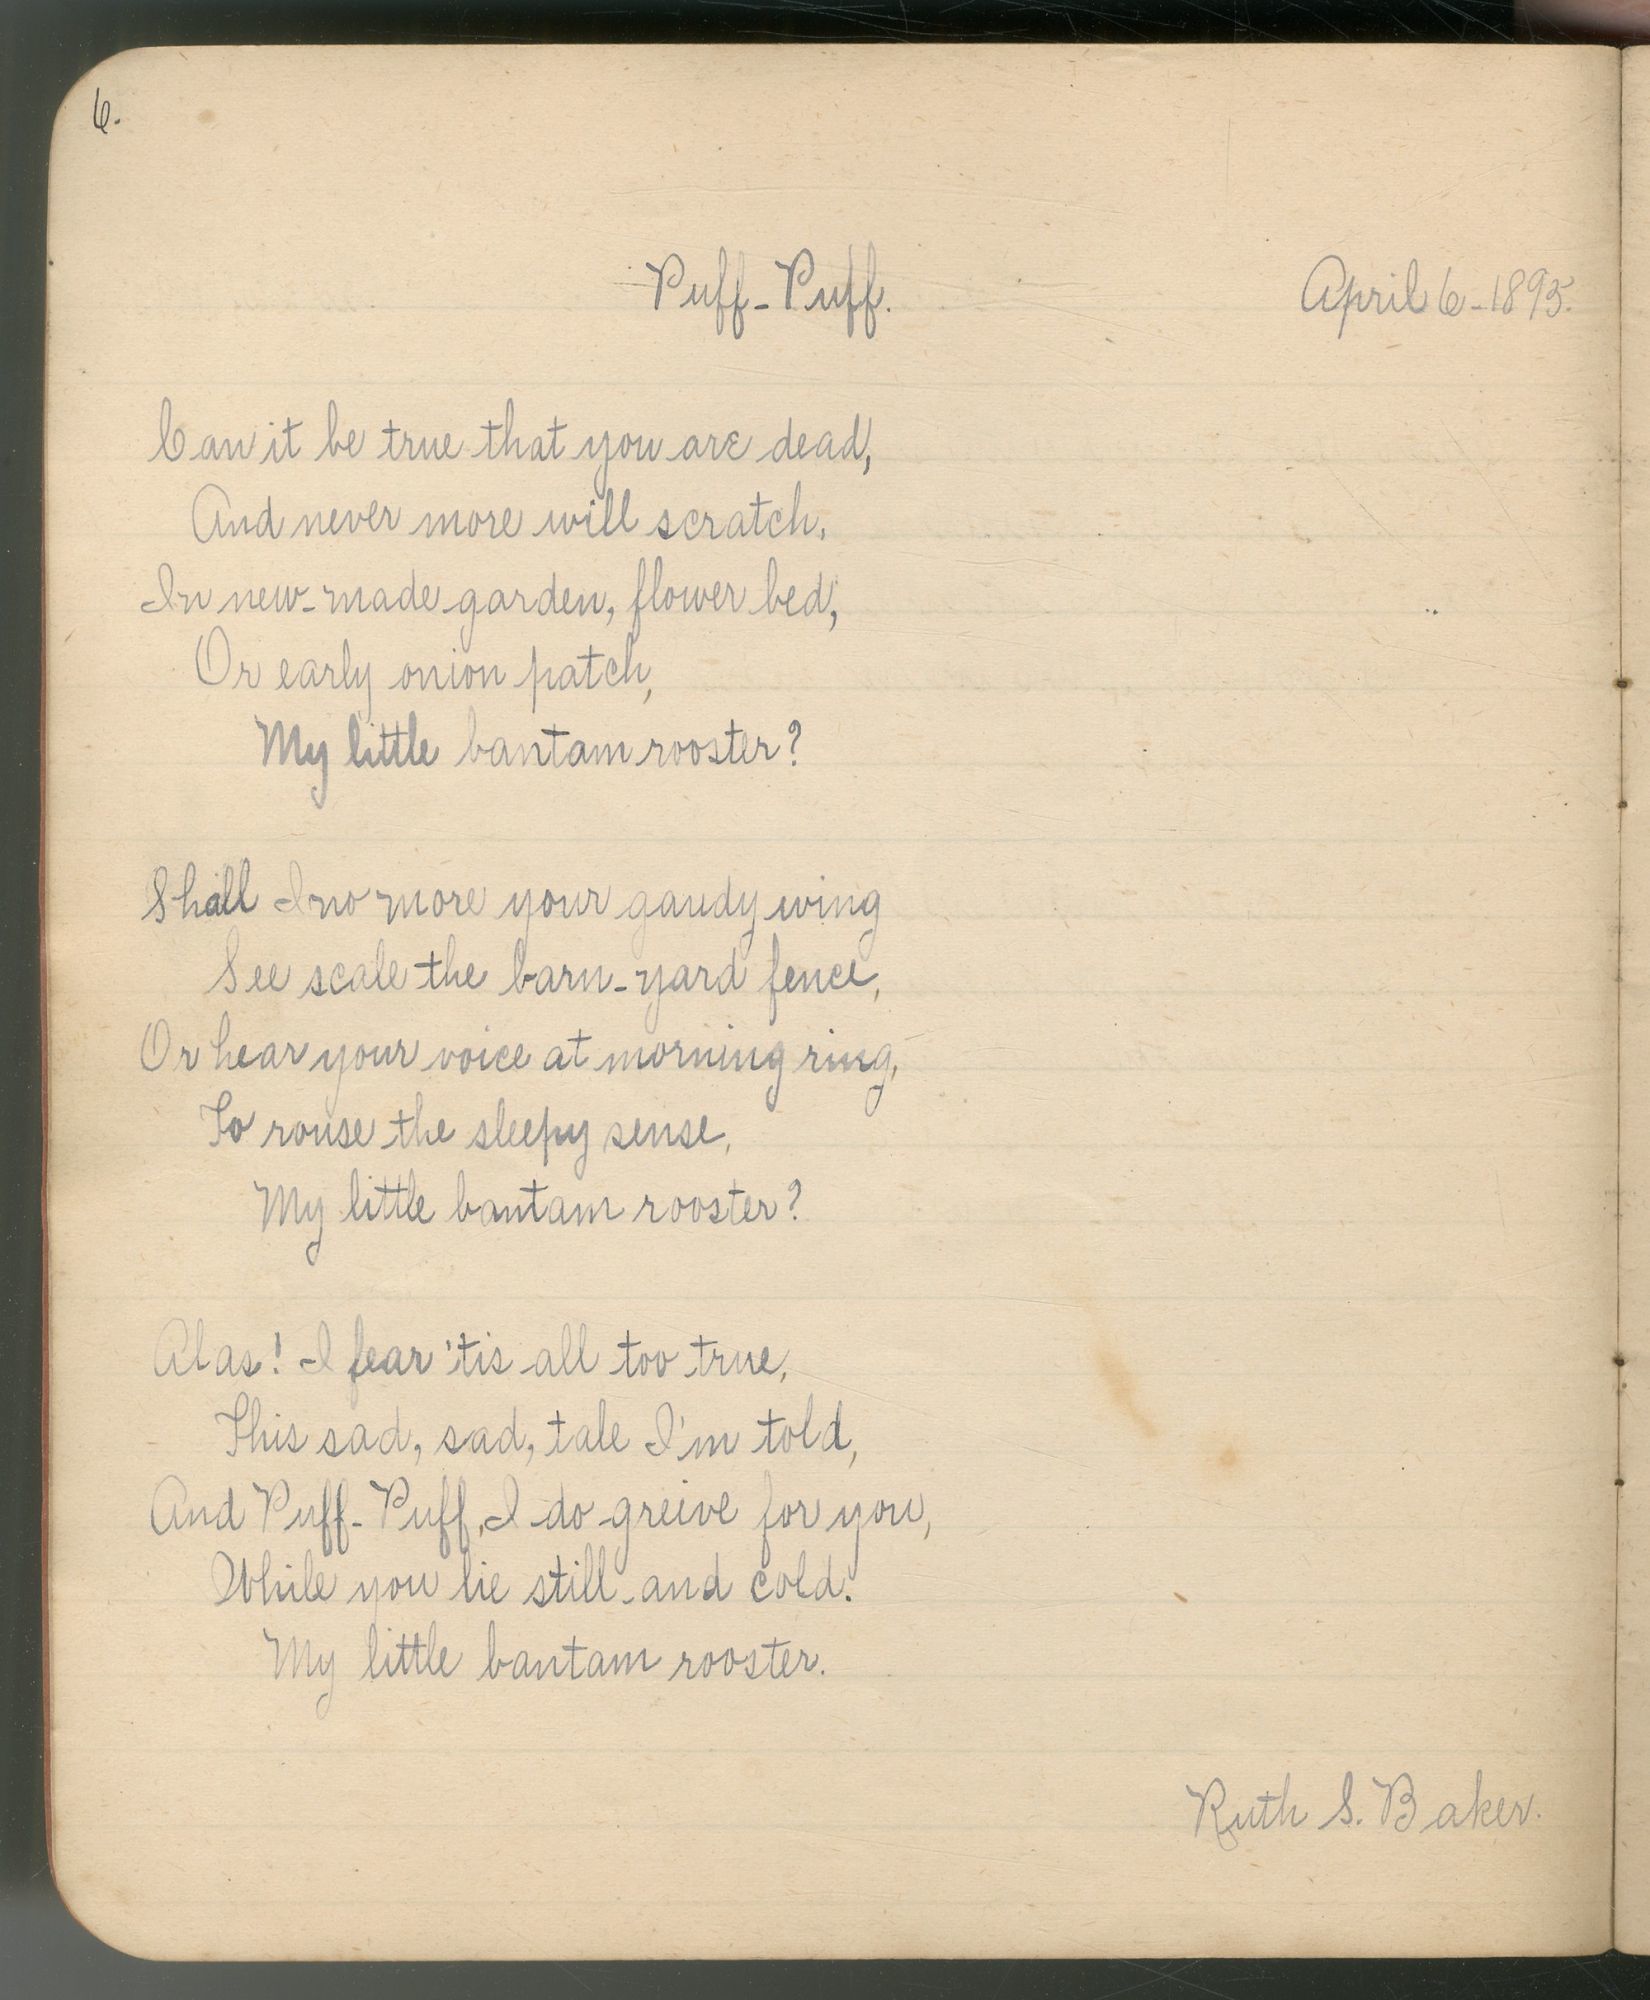 6.
Puff-Puff. April 6-1895.
Can it be true that you are dead,
And never more will scratch,
In new-made garden, flower bed,
Or early onion patch,
My little bantam rooster?
Shall I no more your gaudy wing
See scale the barn-yard fence,
Or hear your voice at morning ring,
To rouse the sleepy sense,
My little bantam rooster?
Alas! I fear 'tis all too true,
This sad, sad, tale I'm told,
And Puff-Puff, I do greive for you,
While you lie still and cold.
My little bantam rooster.
Ruth S. Baker.